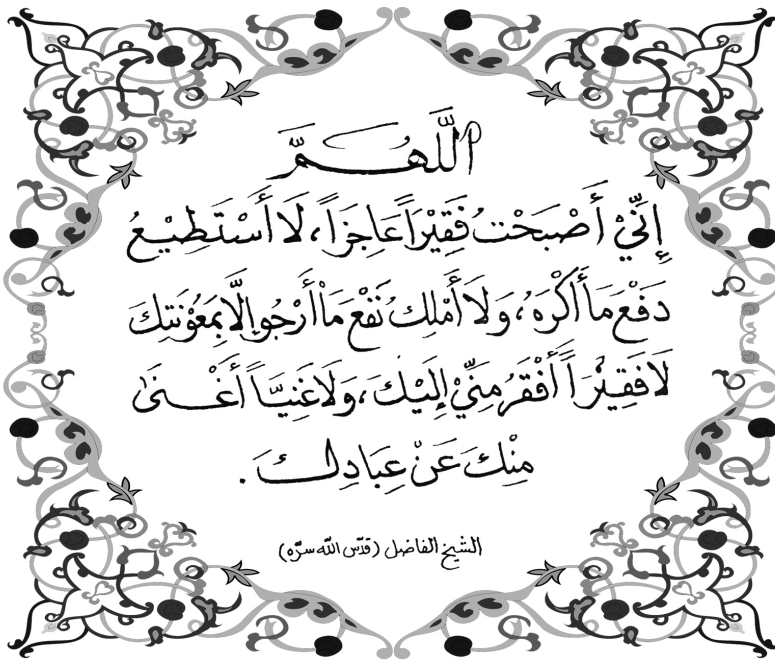 اللَّهُمَّ
إِنِّيْ أَصْبَحْتُ فَقِيْرَاً عَاجِزَاً، لَا أَسْتَطِيْعُ
دَفْعَ مَا أَكْرَهُ، وَلَا أَمْلِكُ نَفْعَ مَاْ أَرْجُو إِلَّا بِمَعُوْنَتِكَ
لَا فَقِيْرَاً أَفْقَرُ مِنِّيْ إِلَيْكَ، وَلَا غَنِيَّاً أَغْنَىٰ
مِنْكَ عَنْ عِبَادِكَ.
الشيخ الفاضل (قدّس الله سرّه)